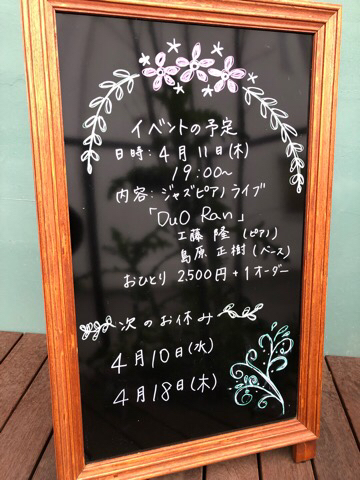 イベントの予定
日時:4月11日(木)
19:00〜
内容:ジャズピアノライブ
「Duo Ran」
工藤 隆(ピアノ)
島原 正樹(ベース)
おひとり 2,500円+1オーダー
次のお休み
4月10日(水)
4月18日(木)